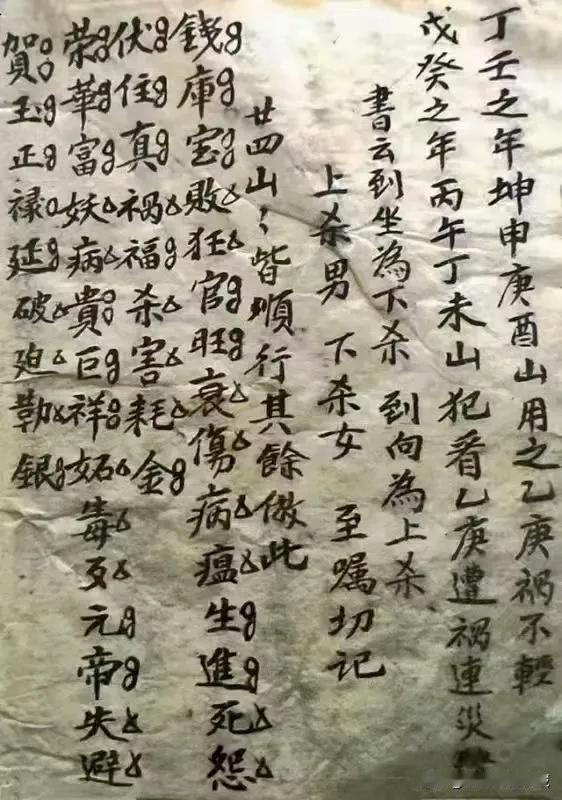 丁壬之年坤申庚酉山用之乙庚祸不輕
戊癸之年丙午丁未山犯看乙庚遭祸連災
書云到坐為下杀 到向為上杀
上杀男 下杀女 至嘱切记
廿四山々皆順行其餘倣此
錢庫宝敗狂官旺衰傷病瘟生進死怨
伏住真祸福杀害耗金
荣華富妖病貴巨祥妬毒歹元帝失避
賀玉正禄延破廹勒銀